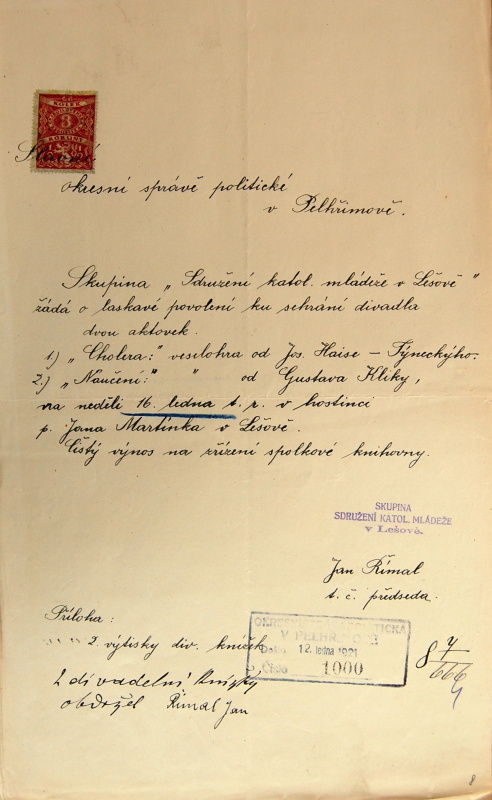 KOLEK
3
KORUNY
Slavné
okresní správě politické
v Pelhřimově.
Skupina „Sdružení katol. mládeže v Lešově"
žádá o laskavé povolení ku sehrání divadla
dvou aktovek.
1.) „Cholera:" veselohra od Jos. Haise – Týneckýho.
2.) „Naučení:" " od Gustava Kliky,
na neděli 16. ledna t. r. v hostinci
p. Jana Martínka v Lešově.
Čistý výnos na zřízení spolkové knihovny.
SKUPINA
SDRUŽENÍ KATOL. MLÁDEŽE
v Lešově.
Jan Římal
t. č. předseda.
Příloha:
2. výtisky div. knížek
OKRESNÍ SPRÁVA POLITICKÁ
V PELHŘIMOVĚ
Došlo 12. ledna 1921
Číslo 1000
2 divadelní knížky
obdržel Římal Jan
8 4/666
8